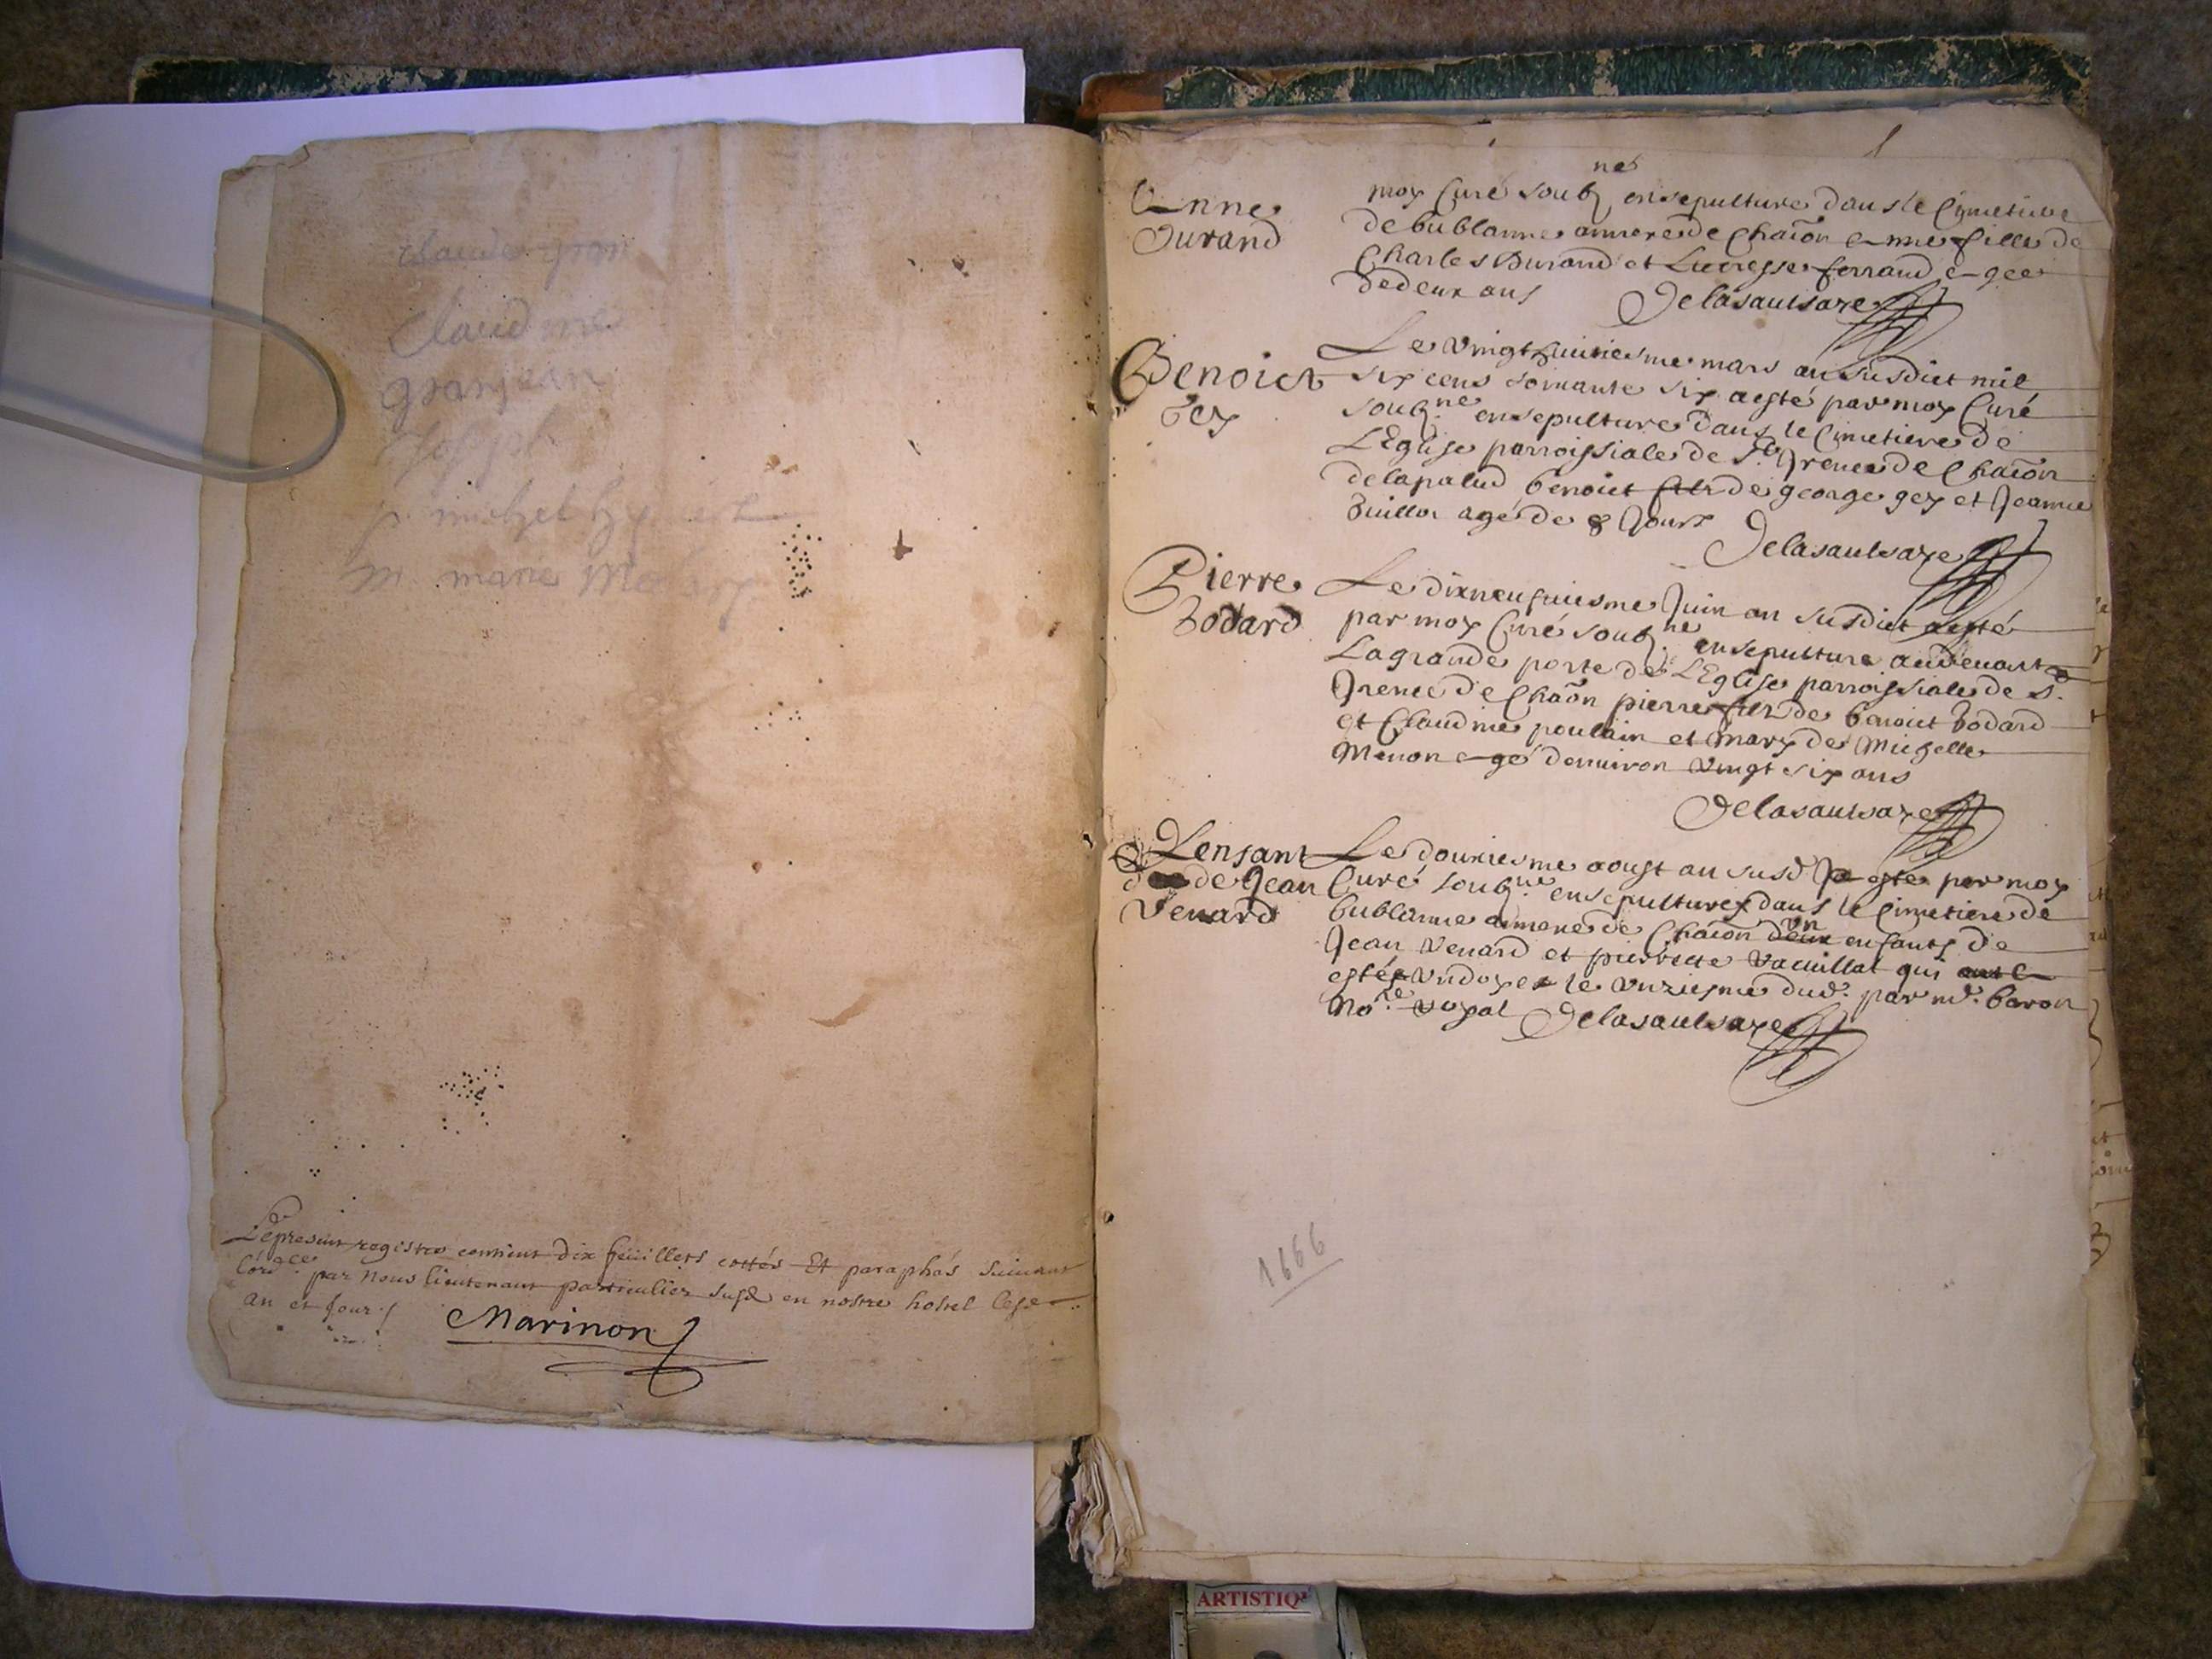 claude gran
Claudine
granjean
Joseph
p. michel
m. marie
Le present registre contient dix feüillets cottés Et paraphés suivant
l'ord.ce par Nous lieutenant particulier susd en nostre hostel lesd
an et Jour
Marinon
1
Anne
Durand
moy Curé soub.né ensepulturé dans le Cimetiere
de bublanne annexe de Chãon Anne fille de
Charles Durand et Lucresse ferrand, agee
de deux ans Delasaulsaye
Benoict
Gey
Le vingt huictiesme mars an susdict mil
six cens soixante six a esté par moy Curé
soub.né ensepulturé dans le Cimetiere de
L'Eglise parroissiale de St Irenee de Chãon
de la palud benoict filz de george gey et Jeanne
agé de 8 Jours Delasaulsaye
Pierre
Bodard
Le dixneufuiesme Juin an susdict a esté
par moy Curé soub.né ensepulturé au devant
La grande porte de L'Eglise parroissiale de S.
Irenee de Chãon pierre filz de benoict bodard
et Claudine poulain et mary de Michelle
Menon agé d'environ vingt six ans
Delasaulsaye
L'enfant
de Jean
Venard
Le douxiesme aoust an susd. a esté par moy
Curé soub.né ensepulturé dans le Cimetiere de
bublanne annexe de Chãon un deux enfants de
Jean Venard et pierrette vauillat qui
esté ondoyé le unziesme dud. par md. baron
No.re royal Delasaulsaye
1666
ARTISTIQ